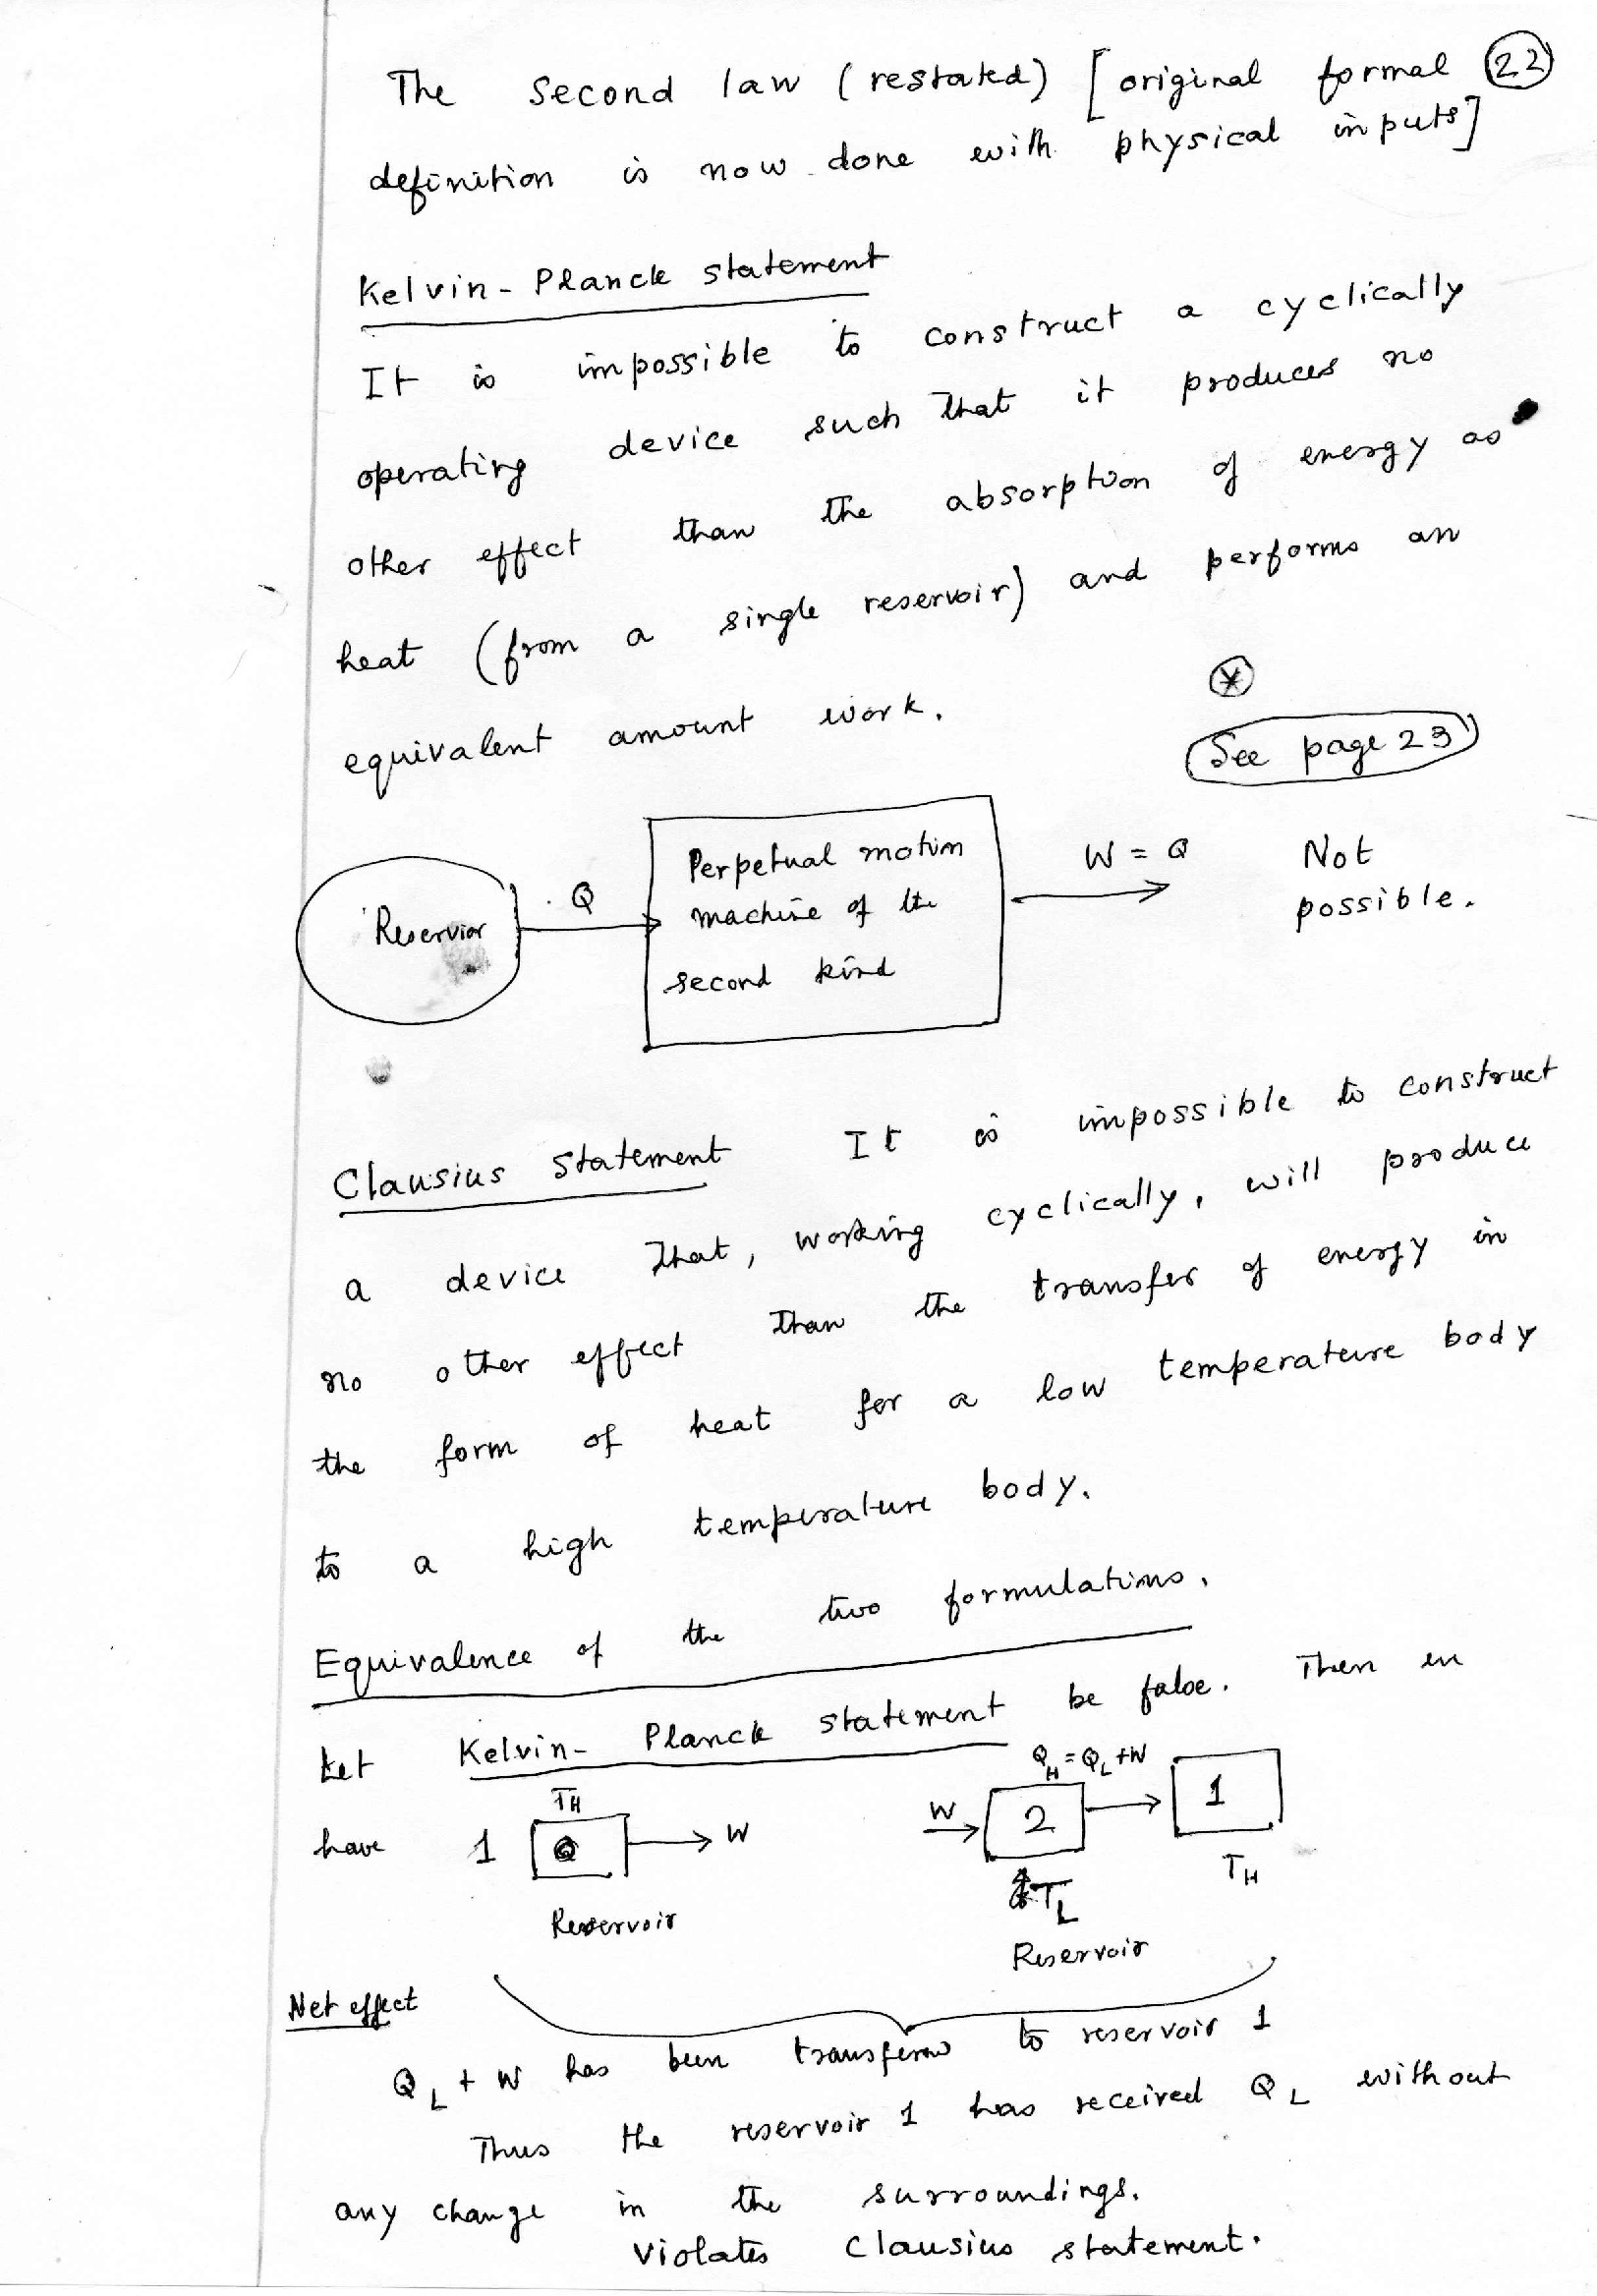 The second law (restated) [original formal 22
definition is now done with physical inputs]
Kelvin-Planck statement
It is impossible to construct a cyclically
operating device such that it produces no
other effect than the absorption of energy as
heat (from a single reservoir) and performs an
equivalent amount work.
*
See page 23
Reservior
Q
Perpetual motion
machine of the
second kind
W = Q
Not
possible.
Clausius statement It is impossible to construct
a device that, working cyclically, will produce
no other effect than the transfer of energy in
the form of heat for a low temperature body
to a high temperature body.
Equivalence of the two formulations.
Let Kelvin-Planck statement be false. Then in
have
1
TH
Q
W
Reservoir
W
2
QH = QL + W
1
TH
TL
Reservoir
Net effect
QL + W has been to reservoir 1
Thus the reservoir 1 has received QL without
any change in the surroundings.
Violates Clausius statement.